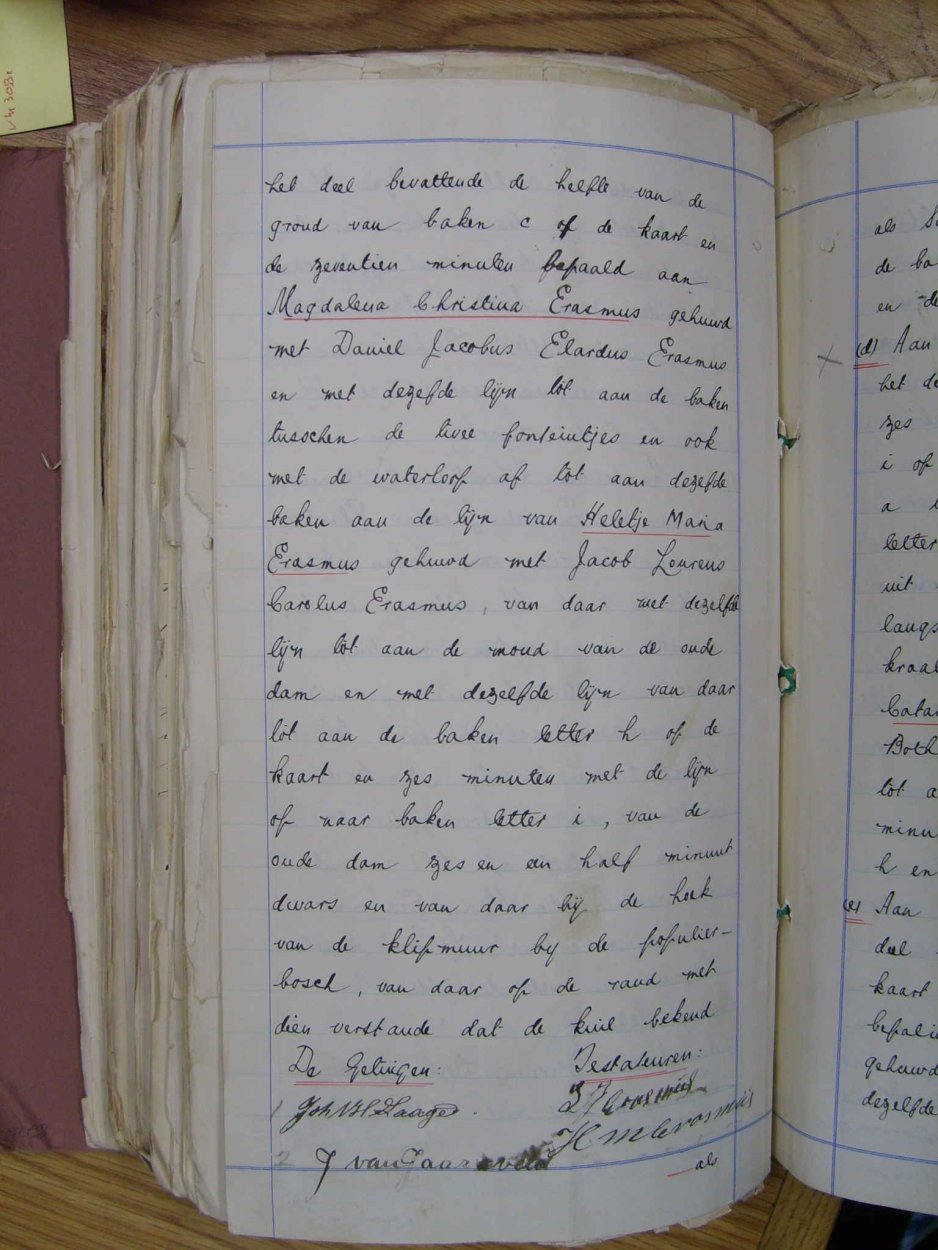 het deel bevattende de helfte van de
grond van baken c op de kaart en
de zeventien minuten bepaald aan
Magdalena Christina Erasmus gehuwd
met Daniel Jacobus Elardus Erasmus
en met dezefde lijn tot aan de baken
tusschen de twee fonteintjes en ook
met de waterloop af tot aan dezefde
baken aan de lijn van Heletje Maria
Erasmus gehuwd met Jacob Lourens
Carolus Erasmus, van daar met dezelfde
lijn tot aan de mond van de oude
dam en met dezelfde lijn van daar
tot aan de baken letter h op de
kaart en zes minuten met de lijn
op naar baken letter i, van de
oude dam zes en een half minuut
dwars en van daar bij de hoek
van de klipmuur by de populier-
bosch, van daar op de rand met
dien verstande dat de kuil bekend
De Getuigen: Testateuren:
1
2 J van Jaarsveld H M Erasmus
als
als
de ba
en de
(d) Aan
het de
zes
i op
a
letter
uit
langs
kraal
Catar
Both
tot a
minu
h en
(e) Aan
deel
kaart
bepali
gehuwd
dezelfde